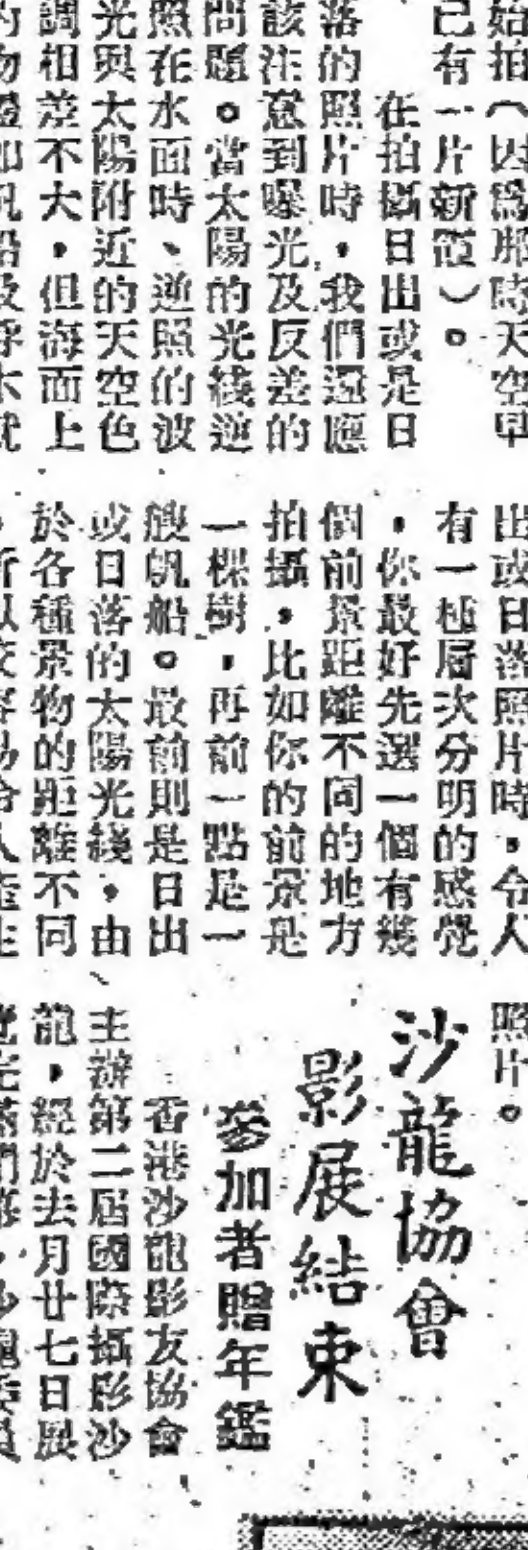 始拍（因爲那時天空早
已有一片新霞）。
在拍攝日出或是日
落的照片時，我們還應
該注意到曝光及反差的
問題。當太陽的光綫逆
照在水面時、逆照的波
光與太陽附近的天空色
調相差不大，但海面上
的物體如帆船及浮木就
出或日落照片時，令人
有一種層次分明的感覺
，你最好先選一個有幾
個前景距離不同的地方
拍攝，比如你的前景是
一棵樹，再前一點是一
艘帆船。最前則是日出
或日落的太陽光綫，由
於各種景物的距離不同
，所以較容易給人產生
照片。
沙龍協會
影展結束
參加者贈年鑑
香港沙龍影友協會
主辦第二屆國際攝影沙
龍，經於去月廿七日展